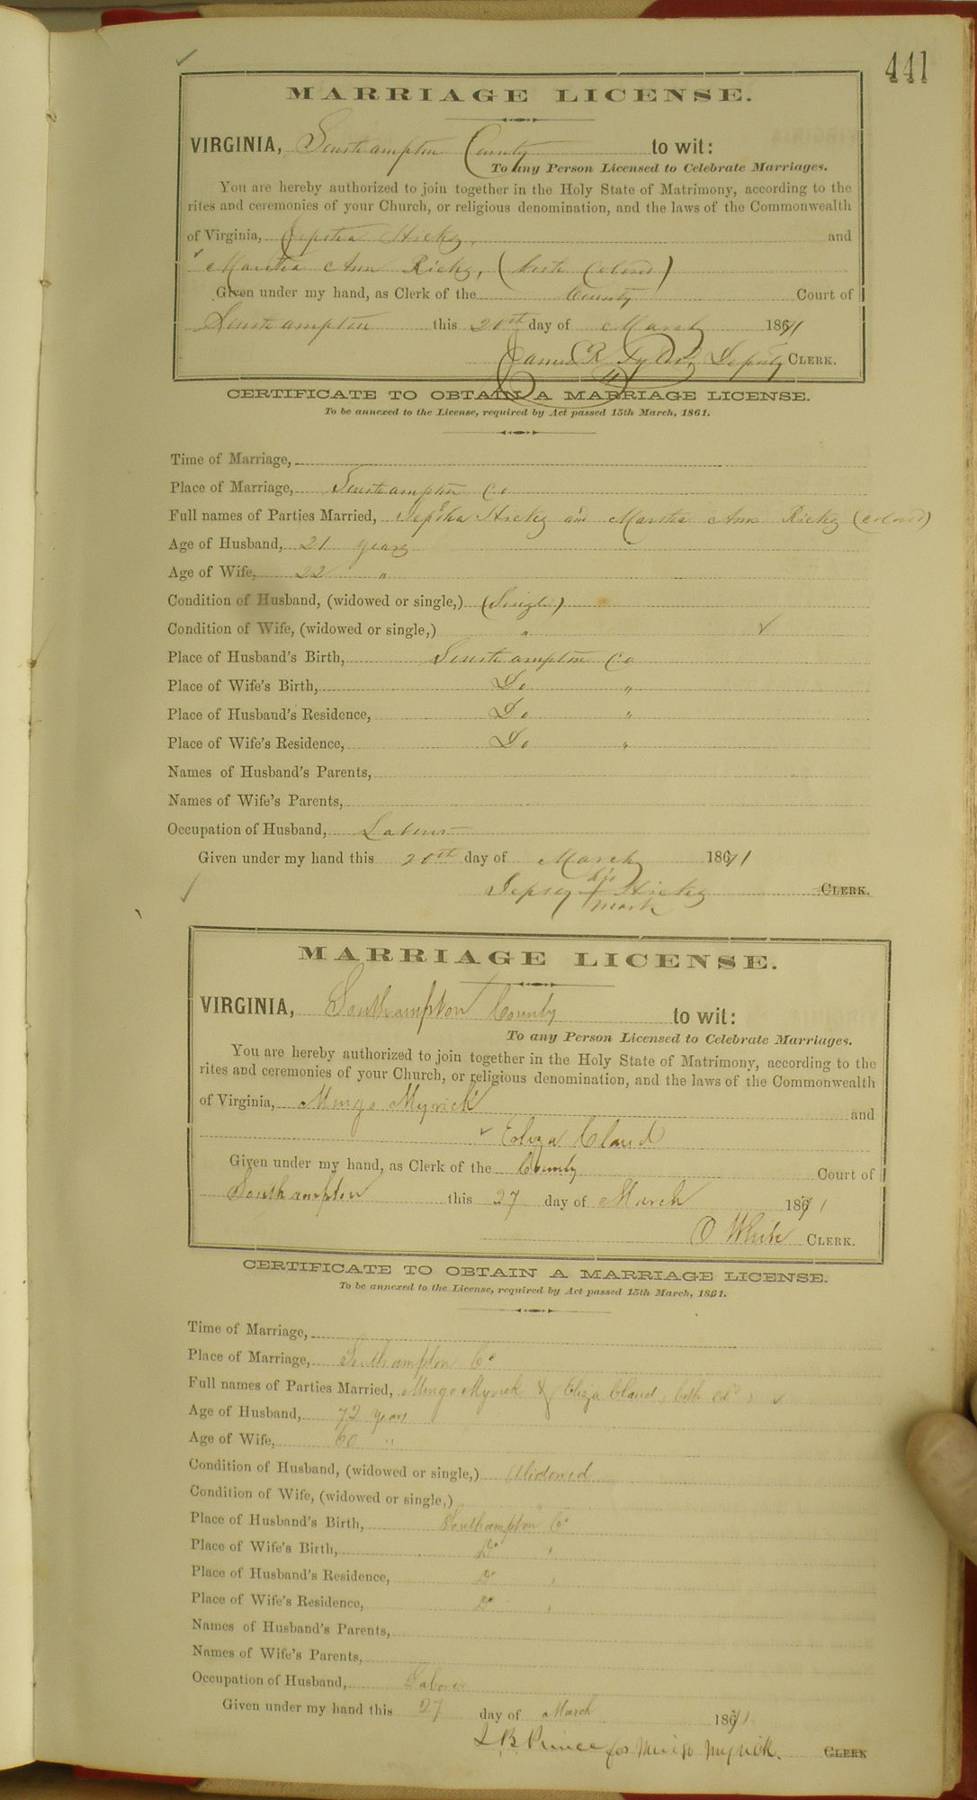 441
MARRIAGE LICENSE.
VIRGINIA, Southampton County to wit:
To any Person Licensed to Celebrate Marriages.
You are hereby authorized to join together in the Holy State of Matrimony, according to the
rites and ceremonies of your Church, or religious denomination, and the laws of the Commonwealth
of Virginia, Jeptha Ricks, and
Martha Ann Ricks, (both Colored)
Given under my hand, as Clerk of the County Court of
Southampton this 20th day of March 1871
James R Deputy CLERK.
CERTIFICATE TO OBTAIN A MARRIAGE LICENSE.
To be annexed to the License, required by Act passed 15th March, 1861.
Time of Marriage,
Place of Marriage, Southampton Co
Full names of Parties Married, Jeptha Ricks and Martha Ann Ricks (colored)
Age of Husband, 21 years
Age of Wife, 22 "
Condition of Husband, (widowed or single,) (Single)
Condition of Wife, (widowed or single,) "
Place of Husband's Birth, Southampton Co
Place of Wife's Birth, Do "
Place of Husband's Residence, Do "
Place of Wife's Residence, Do "
Names of Husband's Parents,
Names of Wife's Parents,
Occupation of Husband, Laborer
Given under my hand this 20th day of March 1871
his
Jepsey + Ricks CLERK.
mark
MARRIAGE LICENSE.
VIRGINIA, Southampton County to wit:
To any Person Licensed to Celebrate Marriages.
You are hereby authorized to join together in the Holy State of Matrimony, according to the
rites and ceremonies of your Church, or religious denomination, and the laws of the Commonwealth
of Virginia, Mingo Myrick and
Eliza Claud
Given under my hand, as Clerk of the County Court of
Southampton this 27 day of March 1871
O White CLERK.
CERTIFICATE TO OBTAIN A MARRIAGE LICENSE.
To be annexed to the License, required by Act passed 15th March, 1861.
Time of Marriage,
Place of Marriage, Southampton Co
Full names of Parties Married, Mingo Myrick & Eliza Claud, both cold
Age of Husband, 72 years
Age of Wife, 60 "
Condition of Husband, (widowed or single,) Widowed
Condition of Wife, (widowed or single,) "
Place of Husband's Birth, Southampton Co
Place of Wife's Birth, Do "
Place of Husband's Residence, Do "
Place of Wife's Residence, Do "
Names of Husband's Parents,
Names of Wife's Parents,
Occupation of Husband, Laborer
Given under my hand this 27 day of March 1871
L B Prince for Mingo Myrick. CLERK